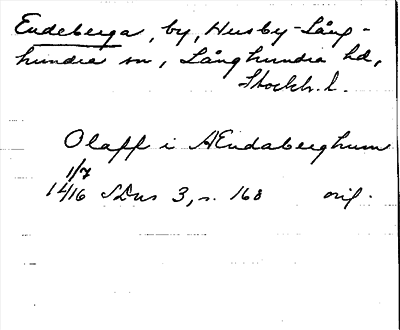 Endeberga, by, Husby-Lång-
hundra sn, Långhundra hd,
Stockh. l.
Olaff i AEndaberghum
1/7
1416 SDns 3, s. 168 orig.